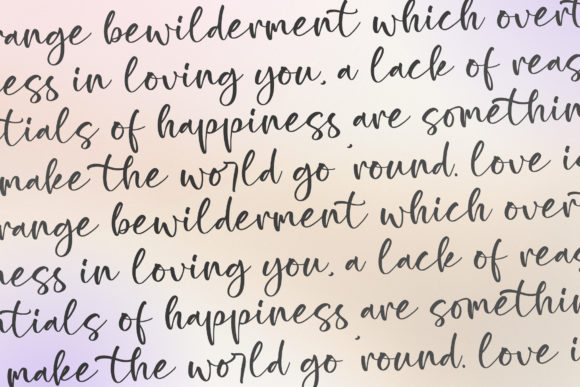 range bewilderment which overt
ess in loving you, a lack of reas
tials of happiness are somethin
make the world go 'round. love is
range bewilderment which overt
ness in loving you, a lack of reas
ntials of happiness are somethin
make the world go 'round. love i